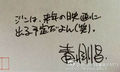 ジンは、来年の映画に
出る予定だよん(笑)。
青山剛昌